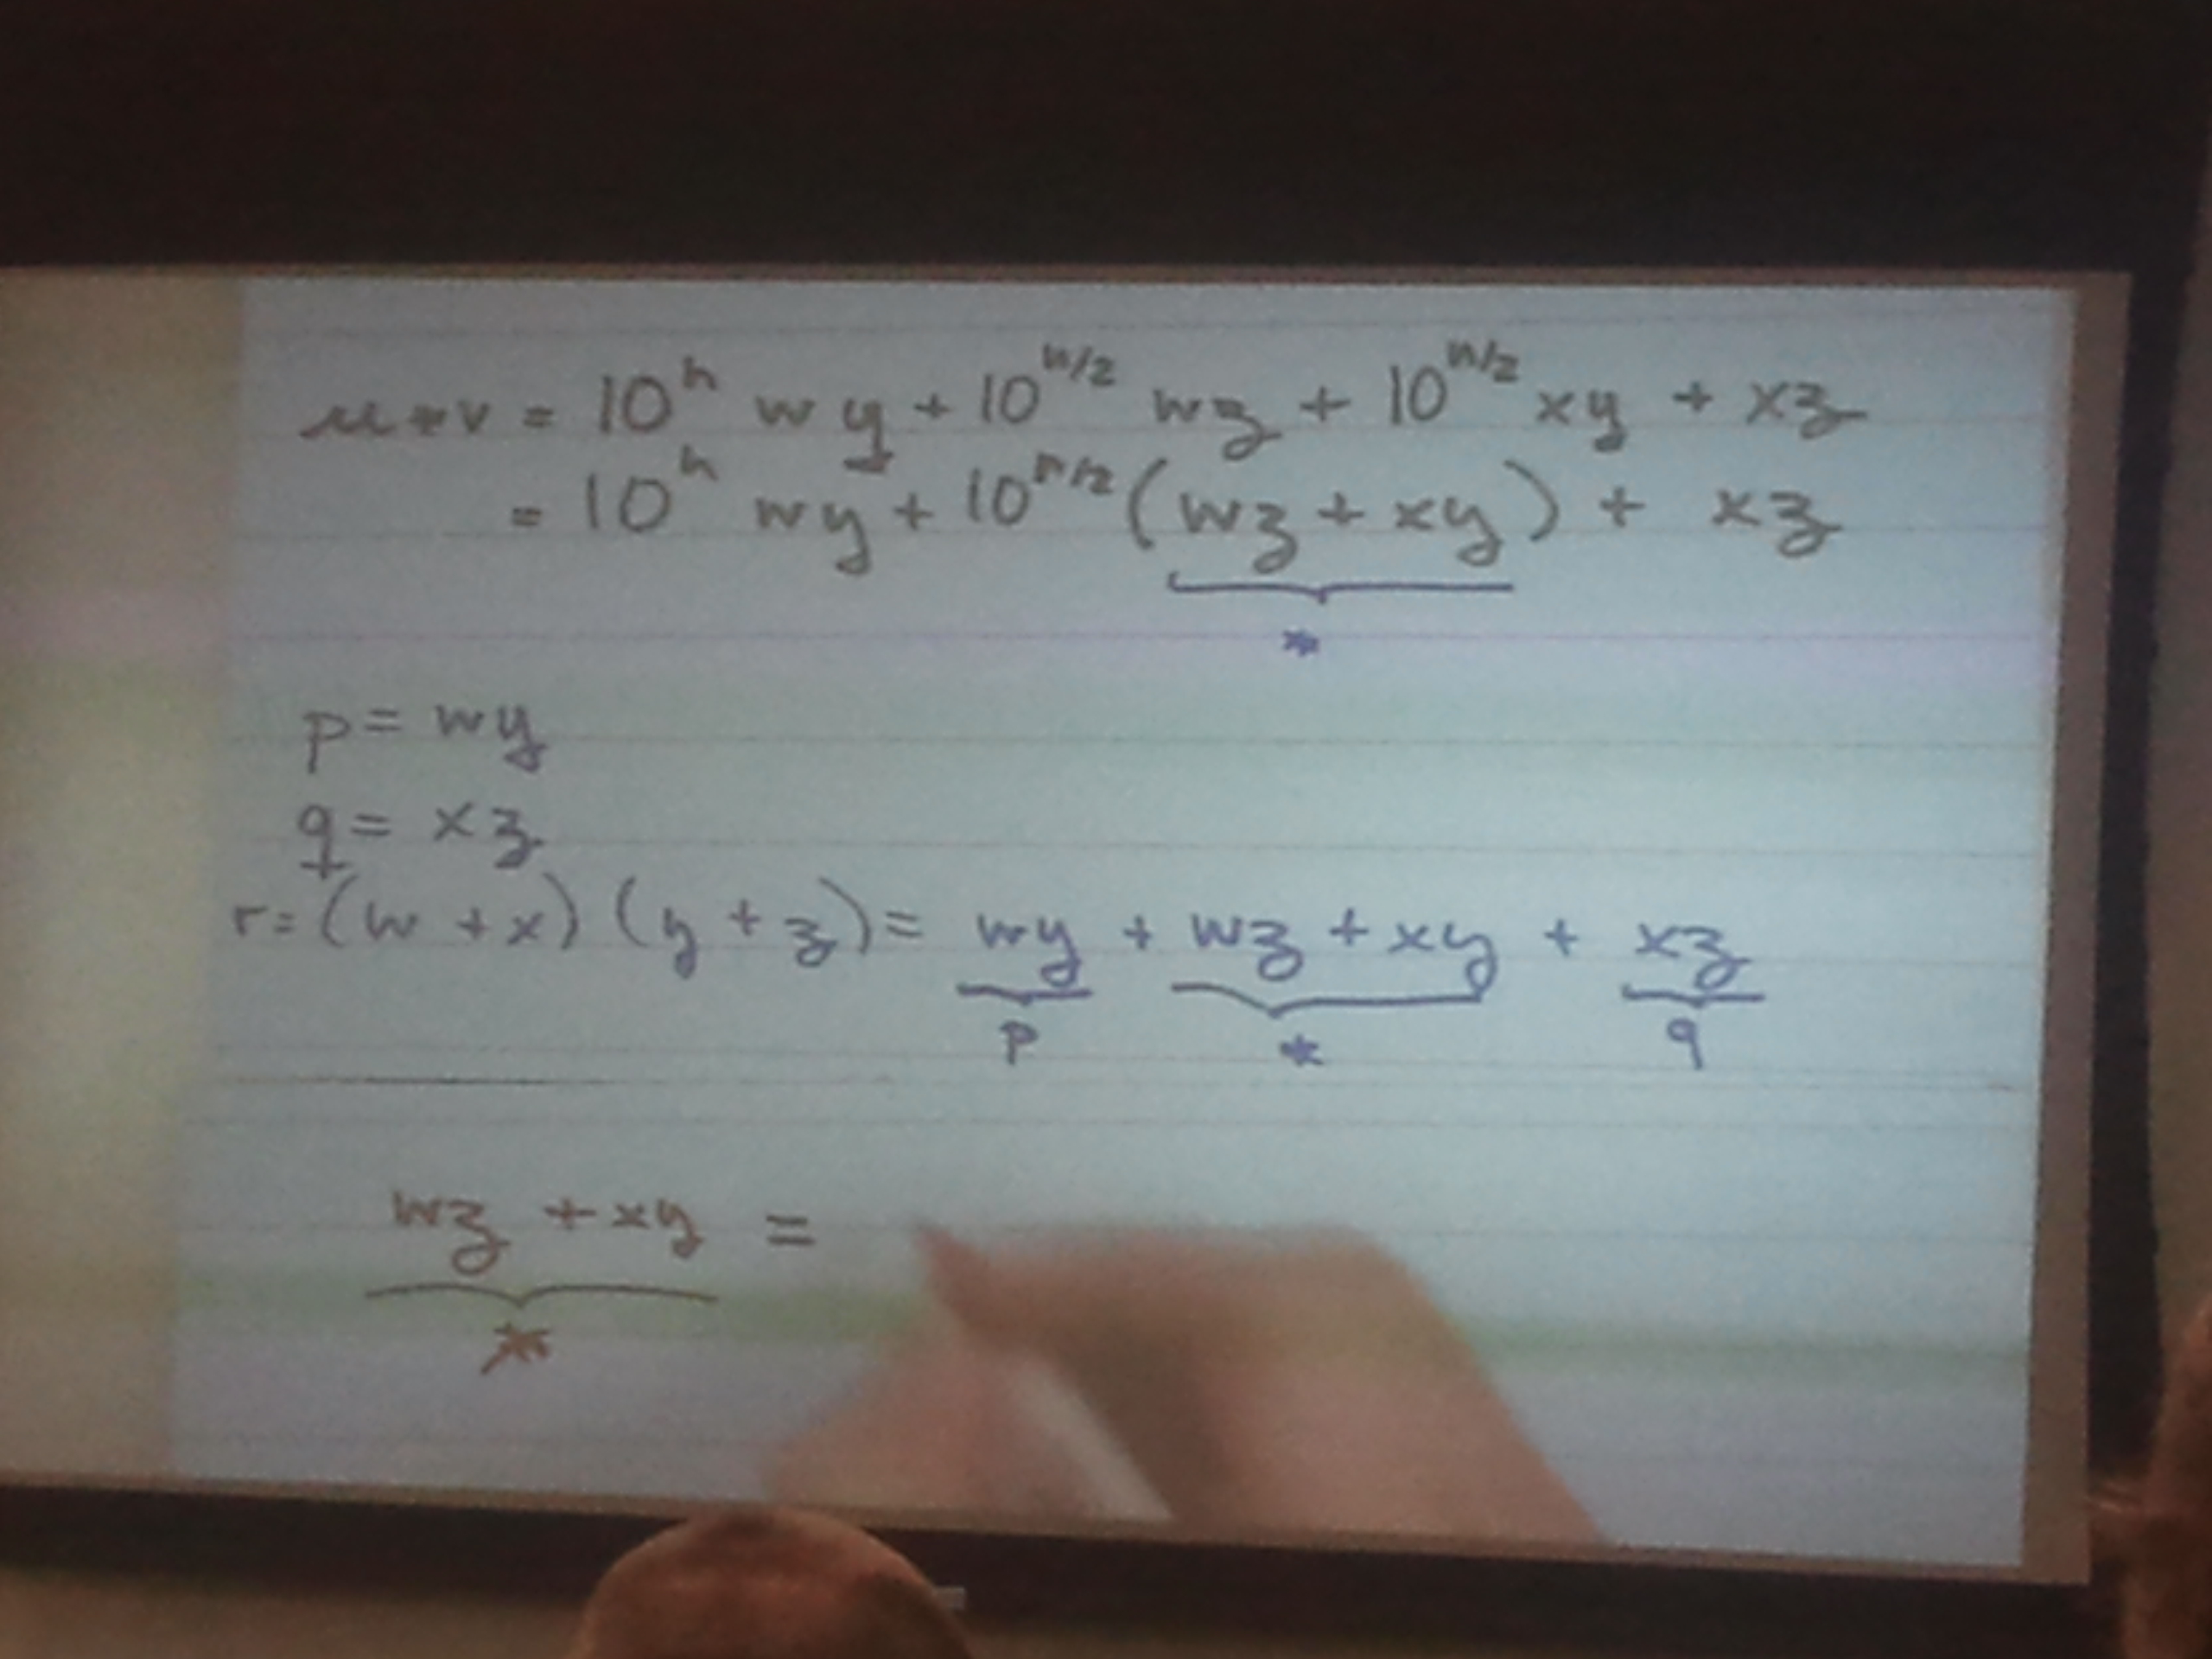 u * v = 10^n wy + 10^{n/2} wz + 10^{n/2} xy + xz
= 10^n wy + 10^{n/2} (wz + xy) + xz
*
p = wy
q = xz
r = (w + x) (y + z) = wy + wz + xy + xz
p * q
wz + xy =
*